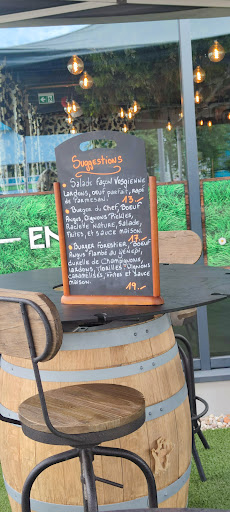 Suggestions
Salade Façon Vosgienne
Lardons, oeuf parfait, râpé
de Parmesan. 13.-
Burger du Chef, Boeuf
Angus, Oignons Pickles,
Raclette Nature, Salade,
Frites, et sauce maison.
17.-
Burger Forestier, Boeuf
Angus Flambé au Génépi,
duxelle de Champignons,
Lardons, Morilles, Oignons
caramélisés, Frites et sauce
maison. 19.-
EN